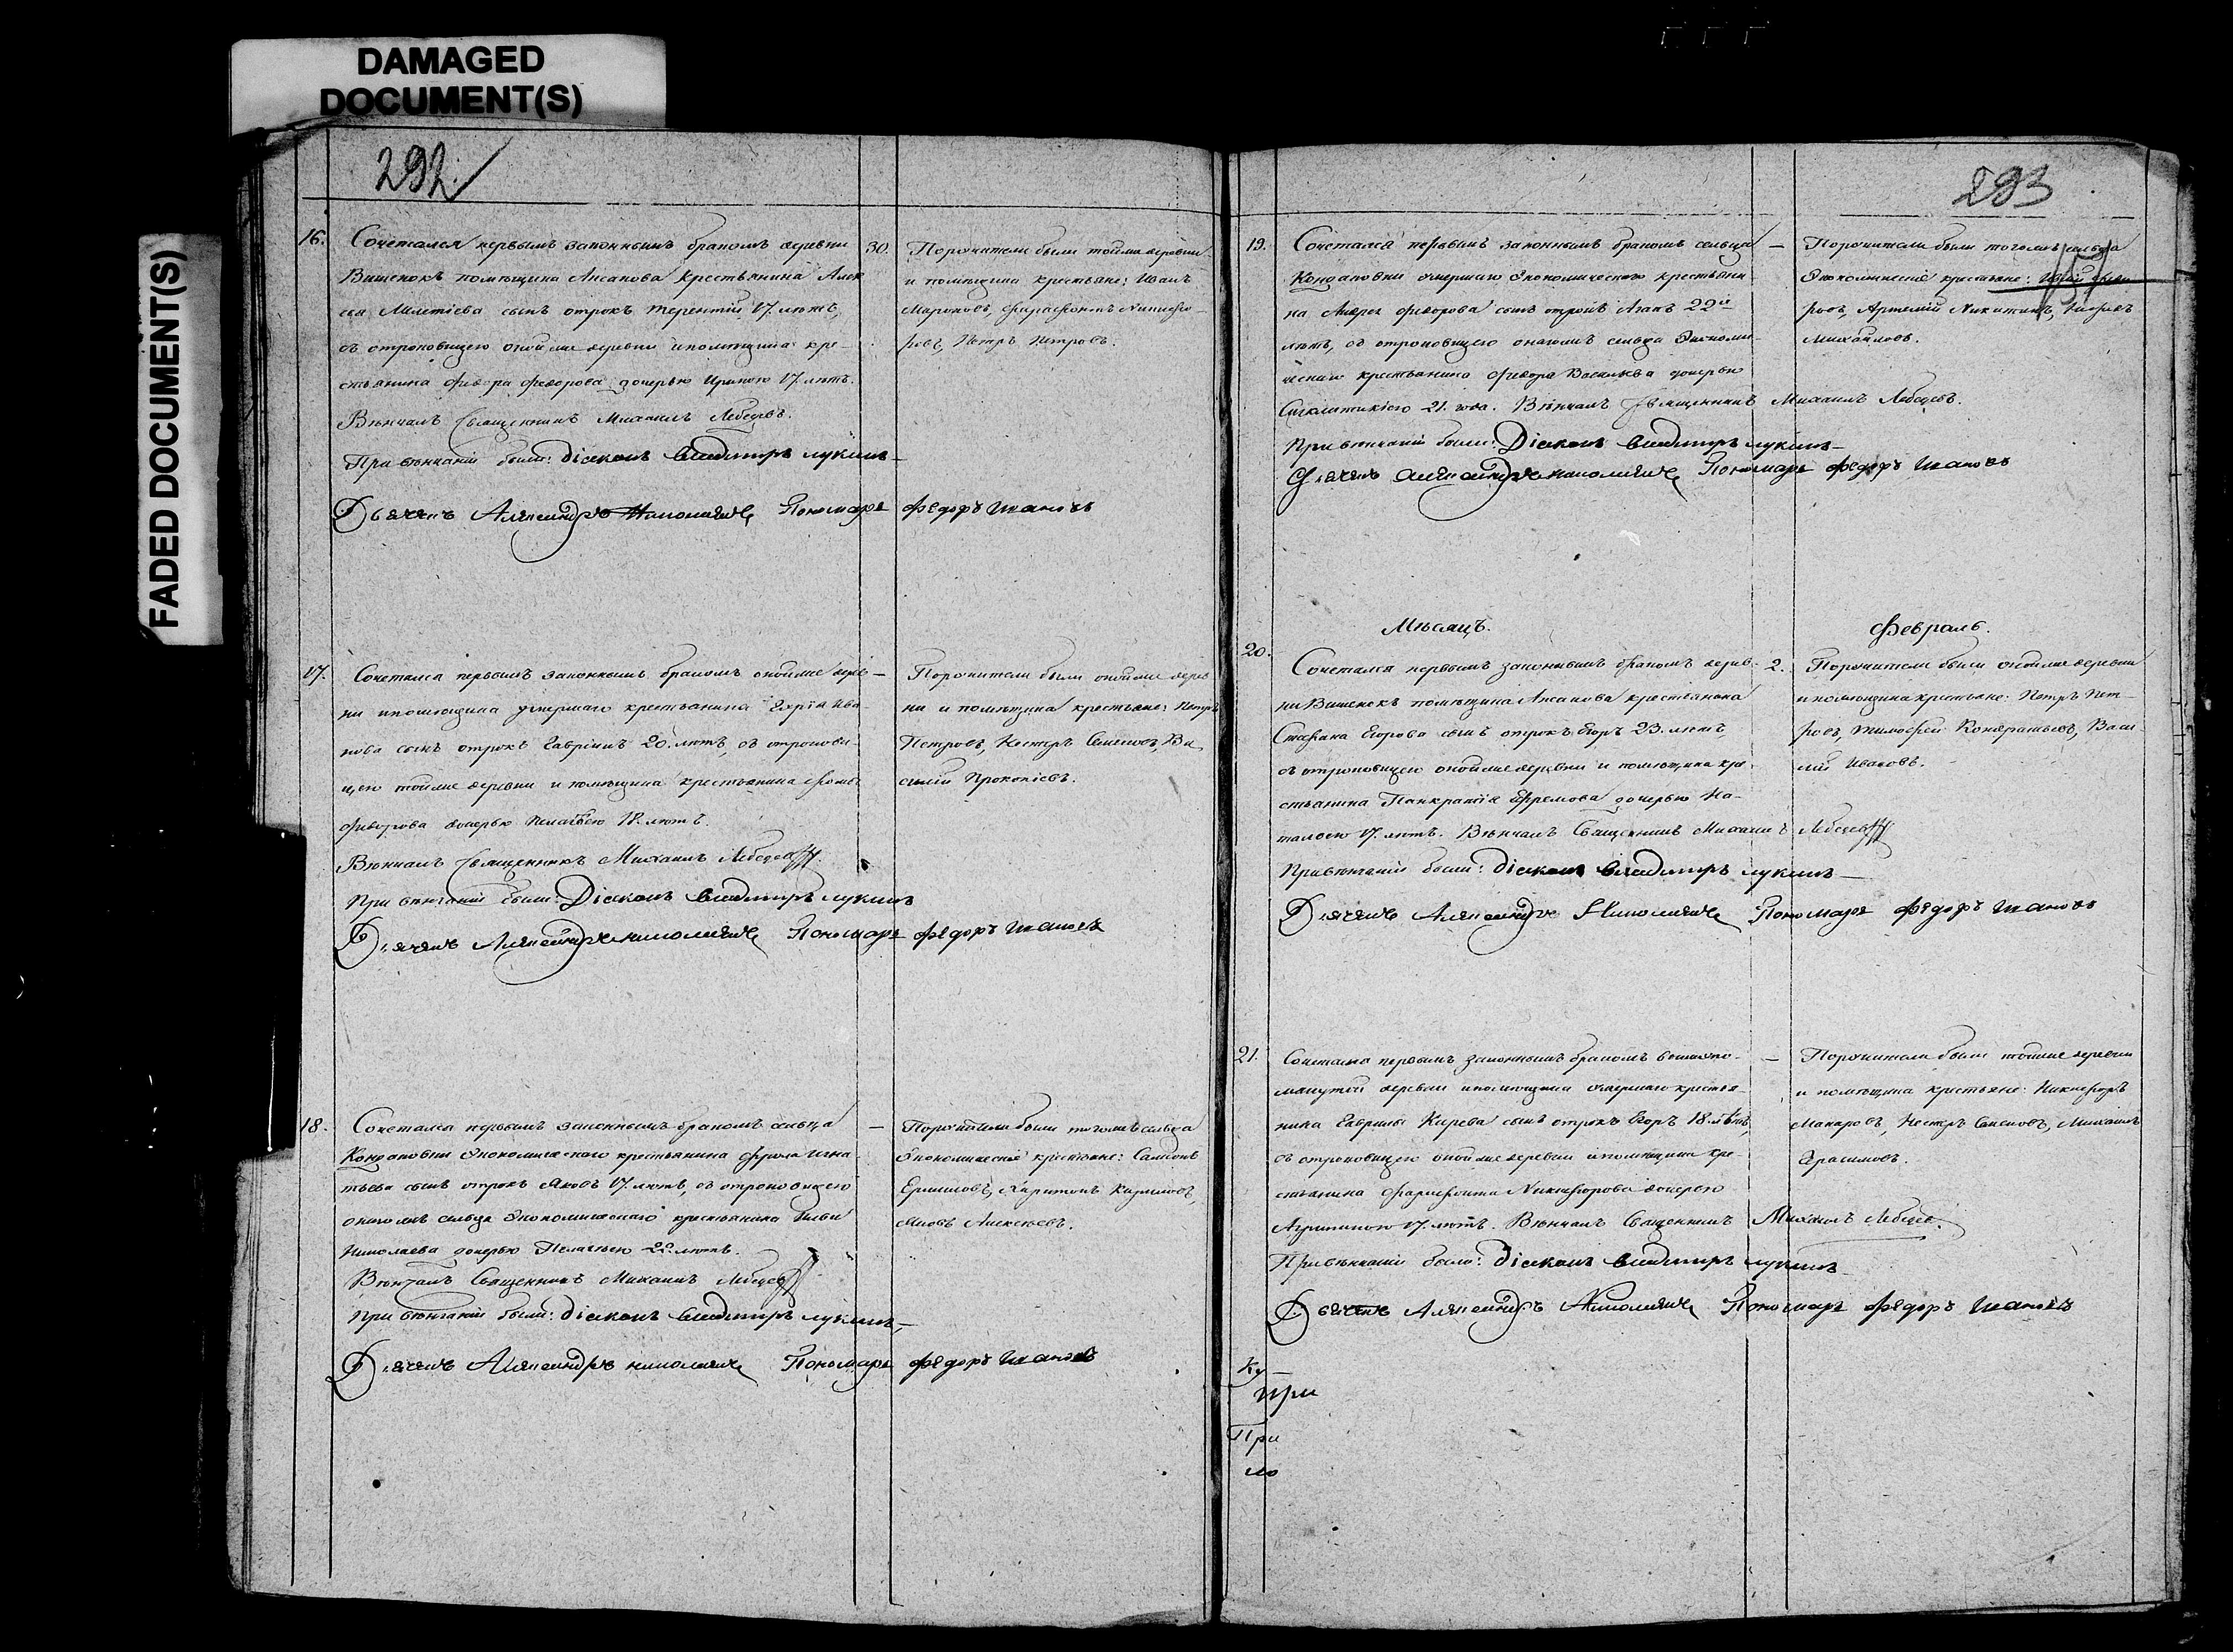 DAMAGED
DOCUMENT(S)
FADED DOCUMENT(S)
292.
16.
Сочетался первымъ законнымъ бракомъ деревни
Вишенокъ помѣщика Аксакова крестьянина Алек
сѣя Милетіева сынъ отрокъ Терентій 17. лѣтъ,
съ отроковицею оной же деревни и помѣщика кре-
стьянина Федора Федорова дочерью Ириною 17. лѣтъ.
Вѣнчалъ Священникъ Михаилъ Лебедевъ.
При вѣнчаніи были: Діаконъ Владимиръ Лукинъ
Дьячекъ Александръ Николаевъ Пономарь Федоръ Ивановъ
30.
Поручители были той же деревни
и помѣщика крестьяне: Иванъ
Марковъ, Никифо-
ровъ, Петръ Петровъ.
17.
Сочетался первымъ законнымъ бракомъ оной же дерев-
ни и помѣщика умершаго крестьянина Ива-
нова сынъ отрокъ Гавріилъ 20. лѣтъ, съ отрокови-
цею той же деревни и помѣщика крестьянина
Федорова дочерью 18. лѣтъ.
Вѣнчалъ Священникъ Михаилъ Лебедевъ
При вѣнчаніи были: Діаконъ Владимиръ Лукинъ
Дьячекъ Александръ Николаевъ Пономарь Федоръ Ивановъ
Поручители были оной же дерев
ни и помѣщика крестьяне: Петръ
Петровъ, Нестеръ Семеновъ, Ва
силій Прокопіевъ.
18.
Сочетался первымъ законнымъ бракомъ сельца
Кондаковки Экономическаго крестьянина Фрола Игна
тьева сынъ отрокъ Яковъ 17. лѣтъ, съ отроковицею
онаго же сельца Экономическаго крестьянина
Николаева дочерью Пелагѣею 22. лѣтъ.
Вѣнчалъ Священникъ Михаилъ Лебедевъ
При вѣнчаніи были: Діаконъ Владимиръ Лукинъ
Дьячекъ Александръ Николаевъ Пономарь Федоръ Ивановъ
Поручители были того жъ сельца
Экономическіе крестьяне: Самсонъ
Ермиловъ, Харитонъ Кириловъ,
Яковъ Алексѣевъ.
283
19.
Сочетался первымъ законнымъ бракомъ сельца
Кондаковки умершаго Экономическаго крестьяни
на Андрея Федорова сынъ отрокъ 22й
лѣтъ, съ отроковицею онаго жъ сельца Экономи-
ческаго крестьянина Федора Васильева дочерью
21. года. Вѣнчалъ Священникъ Михаилъ Лебедевъ.
При вѣнчаніи были: Діаконъ Владимиръ Лукинъ
Дьячекъ Александръ Николаевъ Пономарь Федоръ Ивановъ
Поручители были того жъ сельца
Экономическіе крестьяне:
ровъ, Артемій Никитинъ,
Михайловъ.
Мѣсяцъ. Февраль.
20.
Сочетался первымъ законнымъ бракомъ дерев-
ни Вишенокъ помѣщика Аксакова крестьянина
Стефана Егорова сынъ отрокъ Егоръ 23. лѣтъ
съ отроковицею оной же деревни и помѣщика кре-
стьянина Панкратія Ефремова дочерью На-
тальею 17. лѣтъ. Вѣнчалъ Священникъ Михаилъ Лебедевъ
При вѣнчаніи были: Діаконъ Владимиръ Лукинъ
Дьячекъ Александръ Николаевъ Пономарь Федоръ Ивановъ
2.
Поручители были оной же деревни
и помѣщика крестьяне: Петръ Пет-
ровъ, Тимофей Кондратьевъ, Васи-
лій Ивановъ.
21.
Сочетался первымъ законнымъ бракомъ вышепо-
мянутой деревни и помѣщика умершаго крестья-
нина Гаврилы Карева сынъ отрокъ Егоръ 18. лѣтъ,
съ отроковицею оной же деревни и помѣщика кре-
стьянина Никифорова дочерью
17. лѣтъ. Вѣнчалъ Священникъ Михаилъ Лебедевъ.
При вѣнчаніи были: Діаконъ Владимиръ Лукинъ
Дьячекъ Александръ Николаевъ Пономарь Федоръ Ивановъ
Поручители были той же деревни
и помѣщика крестьяне: Никифоръ
Макаровъ, Нестеръ Семеновъ, Михаилъ
Герасимовъ.
при
При